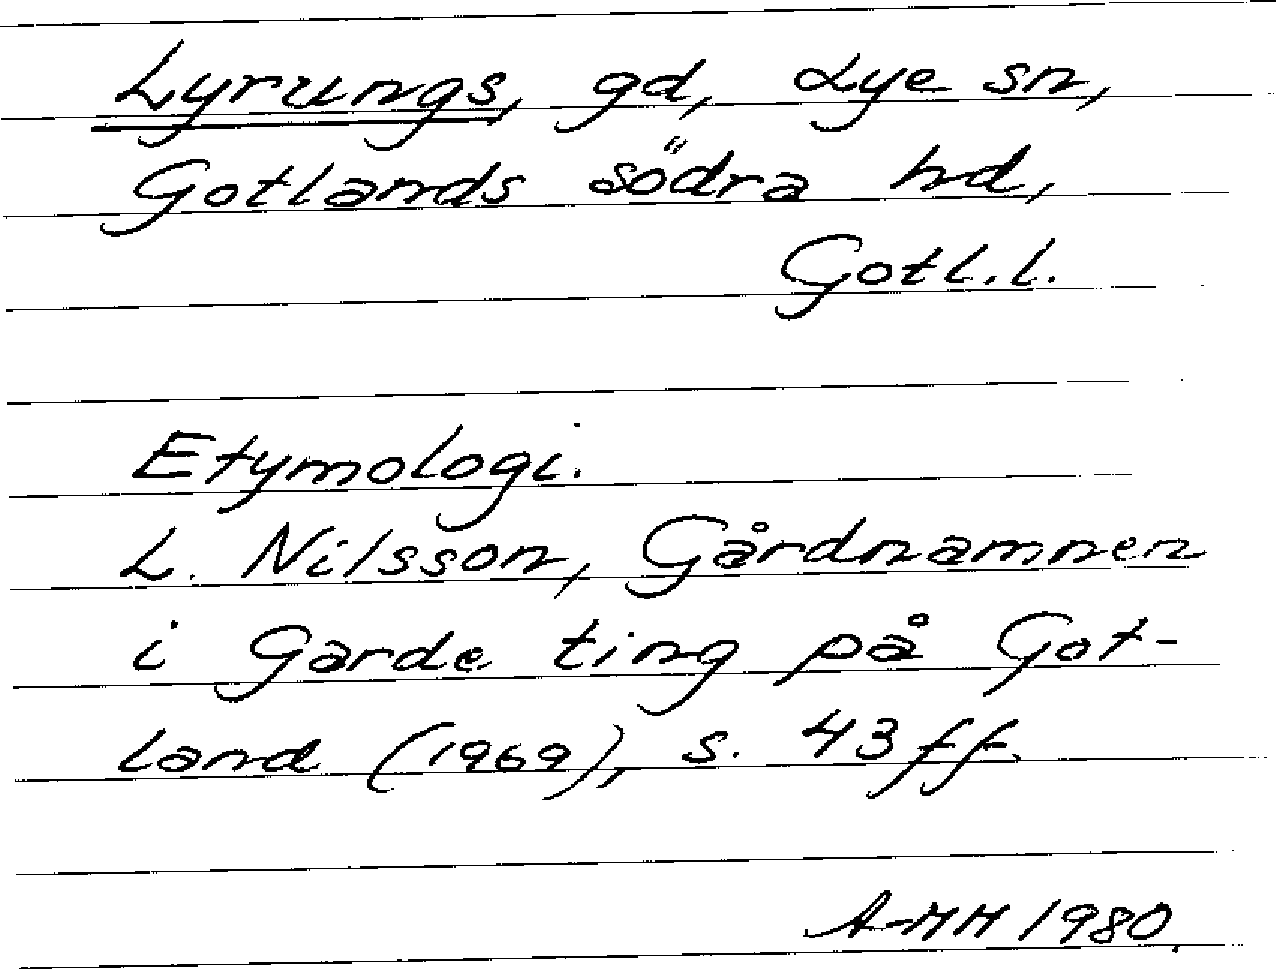 Lyrungs, gd, Lye sn,
Gotlands södra hd,
Gotl.l.
Etymologi.
L. Nilsson, Gårdnamnen
i Garde ting på Got-
land (1969), s. 43 ff.
A-MH 1980.